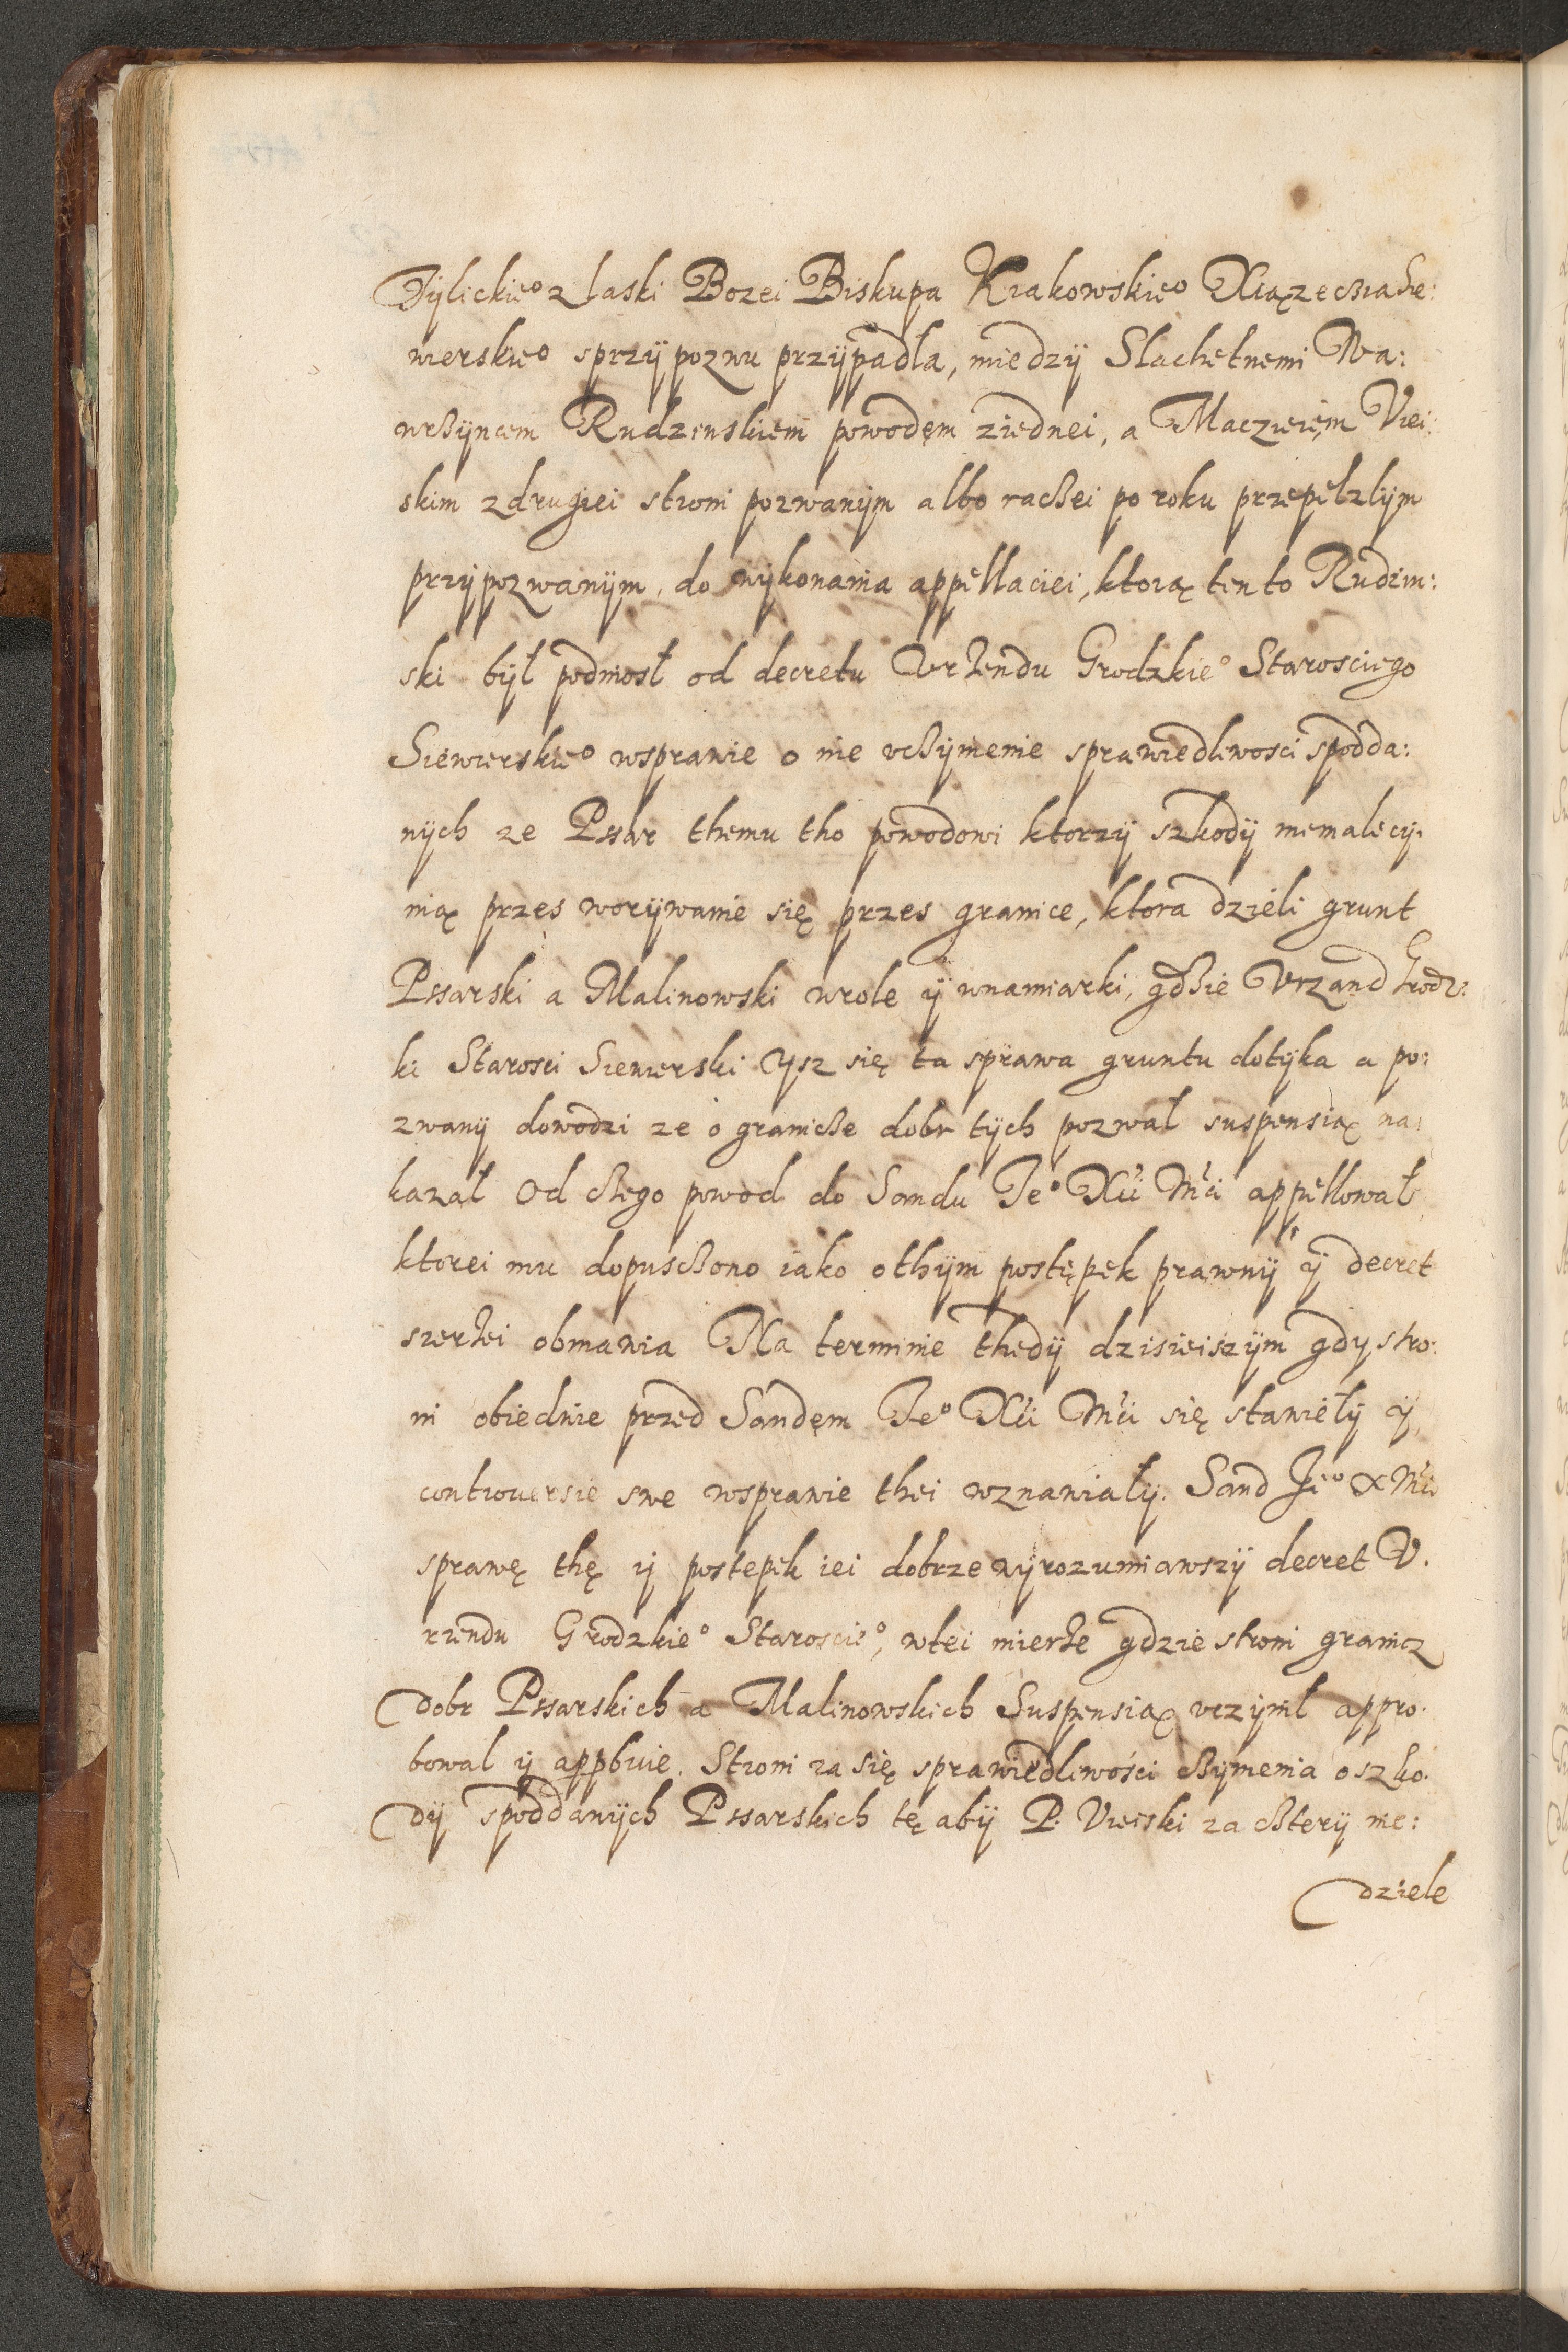 Tÿlickie° z laski Bozei Biskupa Krakowskie° Xiązecżia Sie:
wierskie° sprzÿpozwu przÿpadła, miedzÿ Slachetnemi Wa:
wrżÿncem Rudzenskiem powodęm ziednei, a Maczieięm Viei:
skim zdrugiei stroni pozwanÿm albo raczei po roku przepełzlÿm
przÿpozwanÿm, do wÿkonania appellaciei, ktorą tento Rudzin:
ski bÿł podniosł od decretu Vrzendu Grodzkie° Starosciego
Siewierskie° wsprawie o nie vcżÿnienie sprawiedliwosci spodda:
nÿch ze Pssar themu tho powodowi ktorzÿ szkodÿ niemale cÿ:
nią przes worÿwanie się przes granice, ktora dzieli grunt
Pssarski a Malinowski wrole ÿ wnamiarki, gdżie Vrzand Grodz:
ki Starosci Siewierski ysz się ta sprawa gruntu dotÿka a po:
zwanÿ dowodzi ze o granicże dobr tÿch pozwał suspensią na:
kazał Od cżego powod do Sandu Je° Xći Mći appellował
ktorei mu dopuscżono iako othÿm postępek prawnÿ ÿ decret
szerzei obmawia Na terminie Thedÿ dzisieiszÿm gdy stro:
ni obiednie przed Sandęm Je° Xći Mći się stawiełÿ ÿ
controuersie swe wsprawie thei wznawiałÿ. Sand Je° X Mći
sprawę thę ÿ postepek iei dobrze wÿrozumiawszÿ decret V.
rzendu Grodzkie° Staroscie°, wtei mierze gdzie stroni granicz
dobr Pssarskich a Malinowskich Suspensią vczÿnił appro:
bowal ÿ appbuie. Stroni zasię sprawiedliwości cżÿnienia o szko:
dÿ spoddanÿch Pssarskich tę abÿ P. Vieiski za cżterÿ nie:
dziele